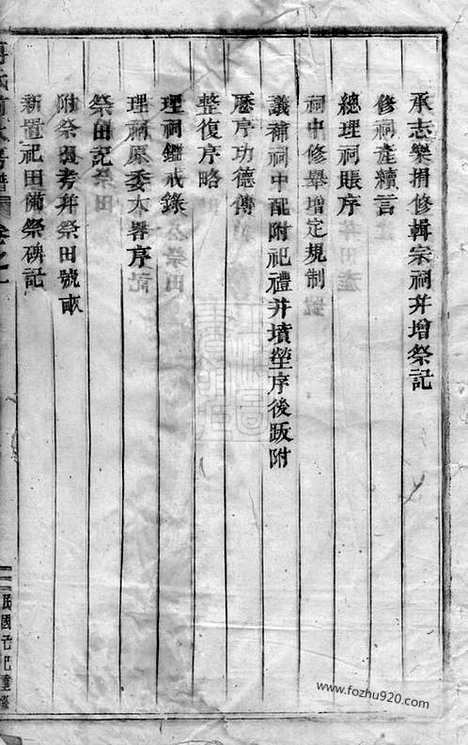 承志樂捐修輯宗祠并增祭記
修祠產續言
總理祠賬序
祠中修舉增定規制
議補祠中配附祀禮并墳塋序後跋附
歷序功德傳
整復序略
理祠鑑戒錄
理祠原委木器序
祭田記
附祭履考并祭田號畝
新置祀田備祭碑記
民國己巳重修
www.fozhu920.com